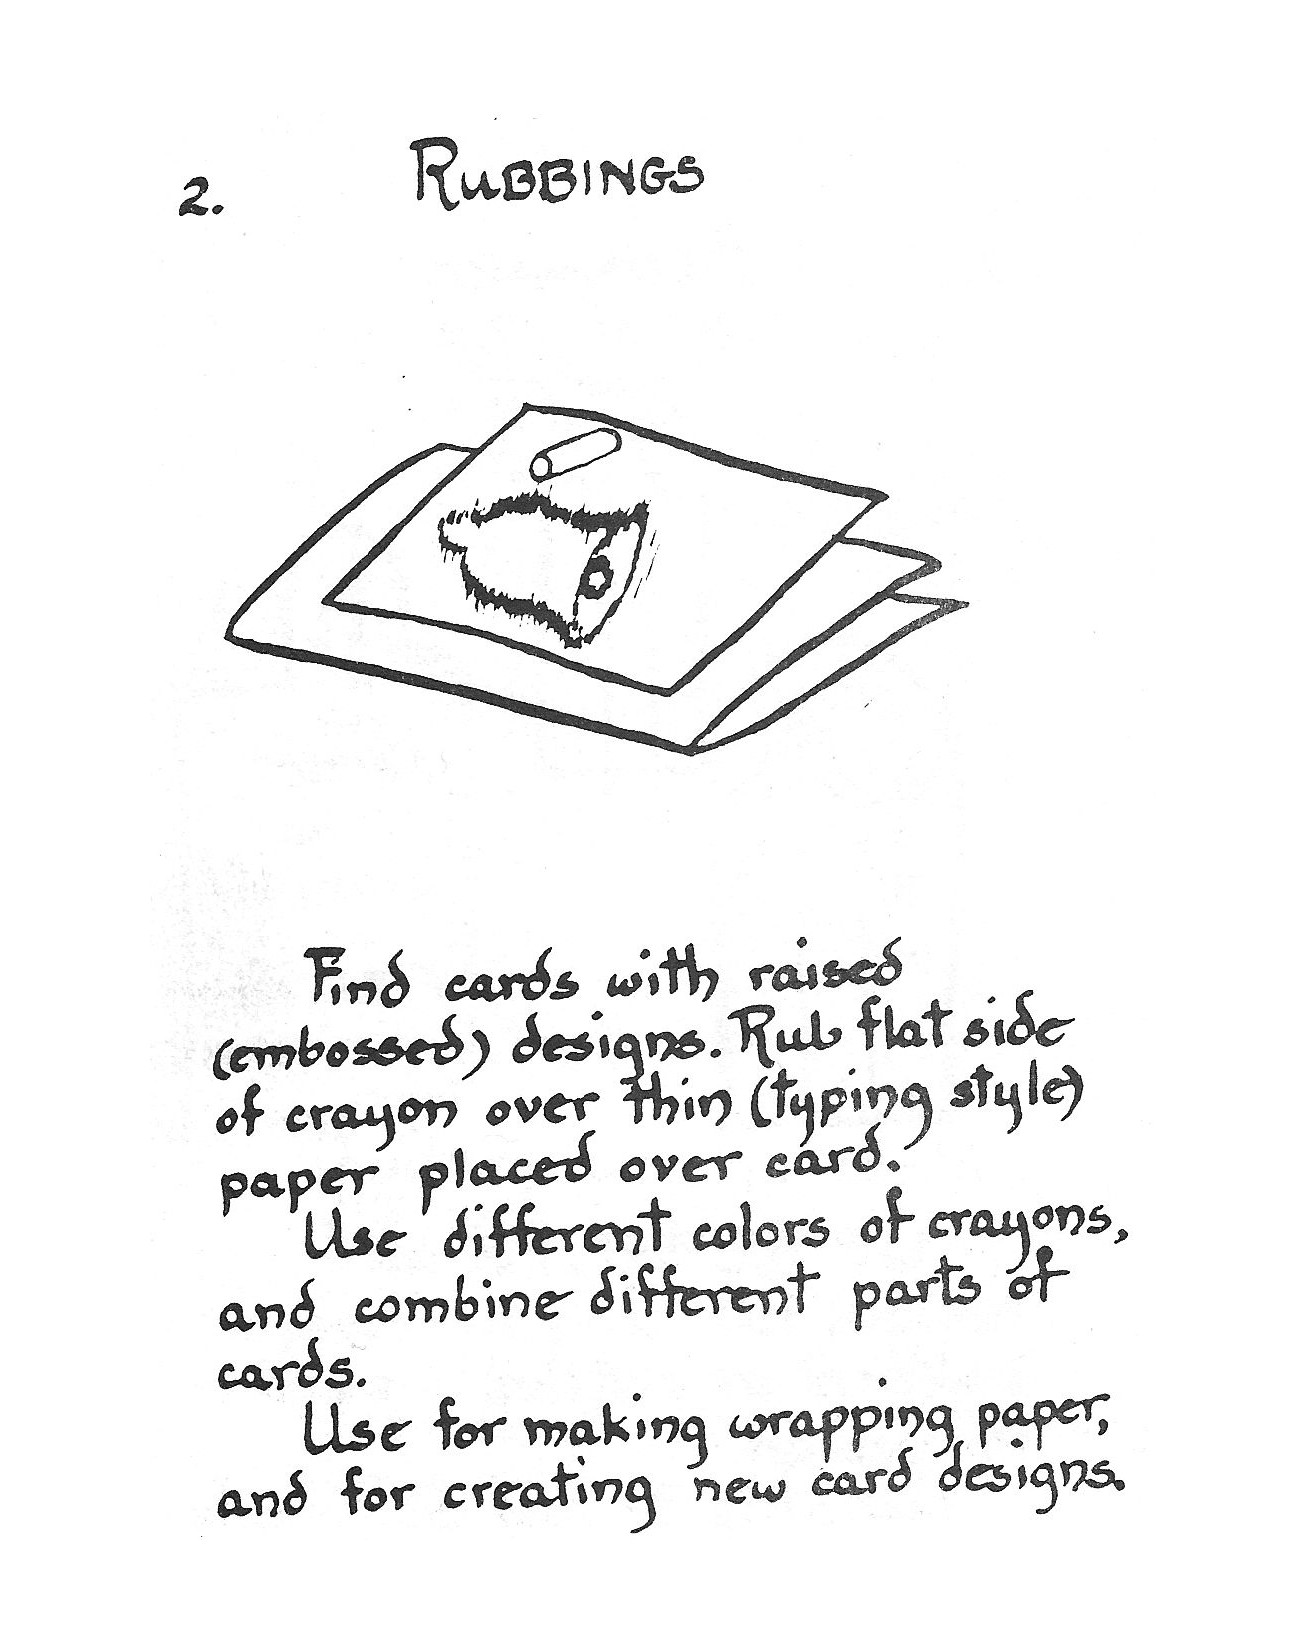 2.
RUBBINGS
Find cards with raised
(embossed) designs. Rub flat side
of crayon over thin (typing style)
paper placed over card.
Use different colors of crayons,
and combine different parts of
cards.
Use for making wrapping paper,
and for creating new card designs.